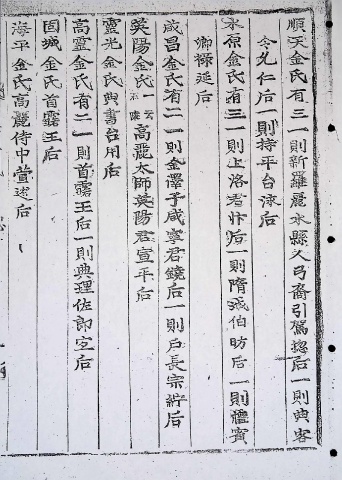 順天金氏有三一則新羅麗水縣人弓裔引駕摠后一則典客
令允仁后一則持平台泳后
水原金氏有三一則上洛君忭后一則隋城伯昉后一則禮賓
卿祿延后
咸昌金氏有二一則金澤子咸寧君鏡后一則戶長宗絎后
英陽金氏一云高麗太師英陽君宣平后
靈光金氏典書台用后
高靈金氏有二一則首露王后一則典理佐郎定后
固城金氏首露王后
海平金氏高麗侍中萱述后